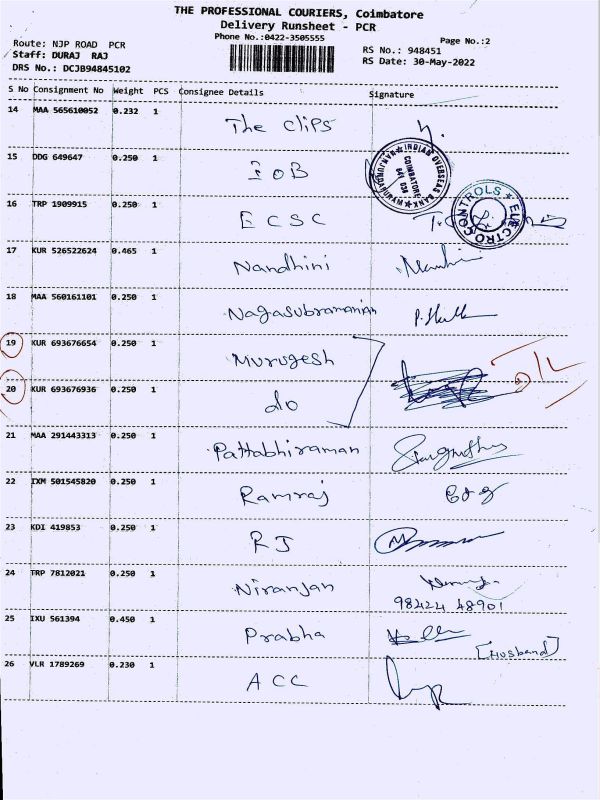 THE PROFESSIONAL COURIERS, Coimbatore
Delivery Runsheet - PCR
Phone No.:0422-3505555
Page No.:2
Route: NJP ROAD PCR
RS No.: 948451
Staff: DURAJ RAJ
RS Date: 30-May-2022
DRS No.: DCJB94845102
S No Consignment No Weight PCS Consignee Details Signature
14 MAA 565610052 0.232 1 The Clips
15 DDG 649647 0.250 1 IOB
INDIAN OVERSEAS BANK
COIMBATORE
641 038
16 TRP 1909915 0.250 1 ECSC
ELECTRO CONTROLS
17 KUR 526522624 0.465 1 Nandhini
18 MAA 560161101 0.250 1 Nagasubramanian
19 KUR 693676654 0.250 1 Murugesh
20 KUR 693676936 0.250 1 do
21 MAA 291443313 0.250 1 Pattabhiraman
22 IXM 501545820 0.250 1 Ramraj
23 KDI 419853 0.250 1 RJ
24 TRP 7812021 0.250 1 Niranjan
98424 48901
25 IXU 561394 0.450 1 Prabha
[Husband]
26 VLR 1789269 0.230 1 ACC